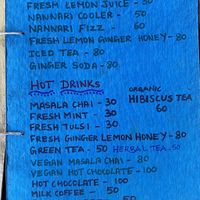 FRESH LEMON JUICE - 30
NANNARI COOLER - 50
NANNARI FIZZ - 60
FRESH LEMON GINGER HONEY - 80
ICED TEA - 80
GINGER SODA - 80
HOT DRINKS
MASALA CHAI - 30
FRESH MINT - 30
FRESH TULSI - 30
FRESH GINGER LEMON HONEY - 80
GREEN TEA - 50 HERBAL TEA 50
VEGAN MASALA CHAI - 80
VEGAN HOT CHOCOLATE - 100
HOT CHOCOLATE - 100
MILK COFFEE - 50
ORGANIC
HIBISCUS TEA
60